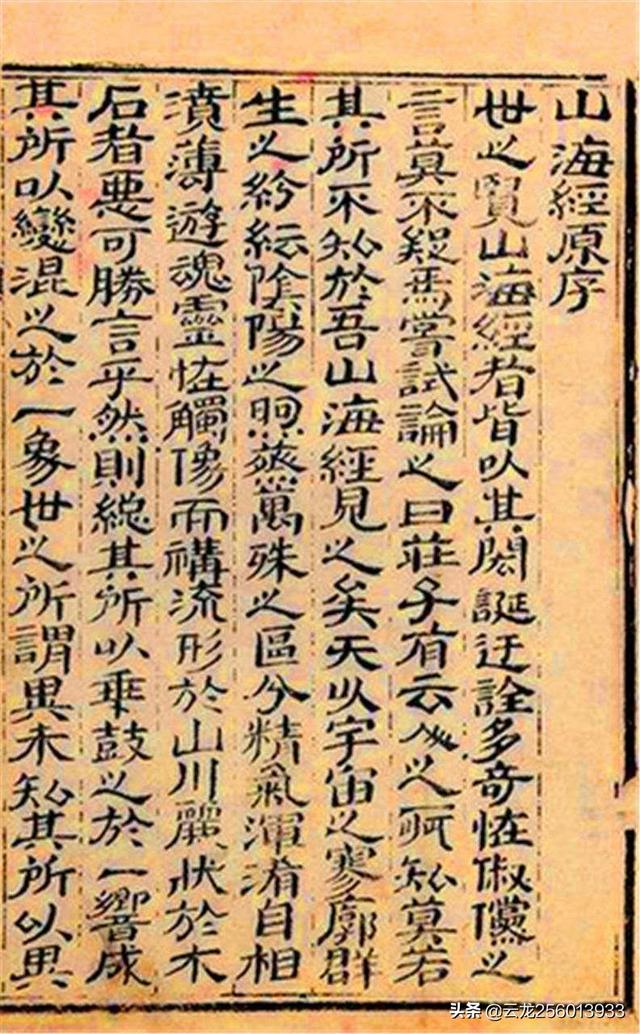 山海經原序
世之覽山海經者皆以其閎誕迂詮多奇怪俶儻之
言莫不疑焉嘗試論之曰莊子有云人之所知莫若
其所不知於吾山海經見之矣天以宇宙之寥廓群
生之紛紜陰陽之煦蒸萬殊之區分精氣渾淆自相
濆薄遊魂靈怪觸像而構流形於山川麗狀於木
石者惡可勝言乎然則總其所以乖鼓之於一響成
其所以變混之於一象世之所謂異未知其所以異
头条 @云龙256013933